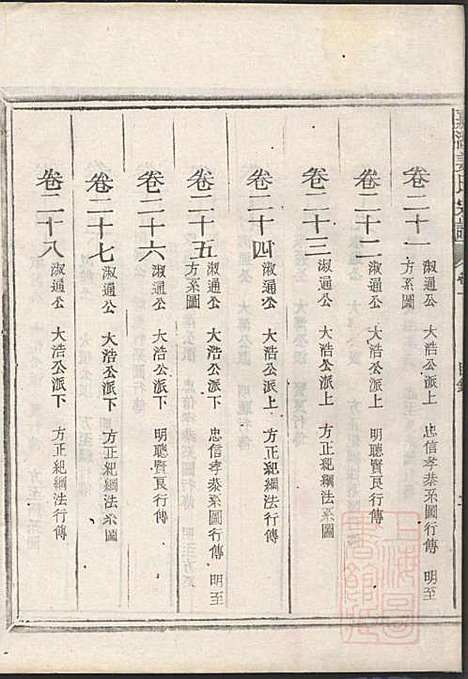 卷二十一
淑通公 大浩公派上 忠信孝恭系圖行傳 明至
方系圖
卷二十二
淑通公 大浩公派上 明聽賢良行傳
卷二十三
淑通公 大浩公派上 方正紀綱法系圖
卷二十四
淑通公 大浩公派上 方正紀綱法行傳
卷二十五
淑通公 大浩公派下 忠信孝恭系圖行傳 明至
方系圖
卷二十六
淑通公 大浩公派下 明聽賢良行傳
卷二十七
淑通公 大浩公派下 方正紀綱法系圖
卷二十八
淑通公 大浩公派下 方正紀綱法行傳